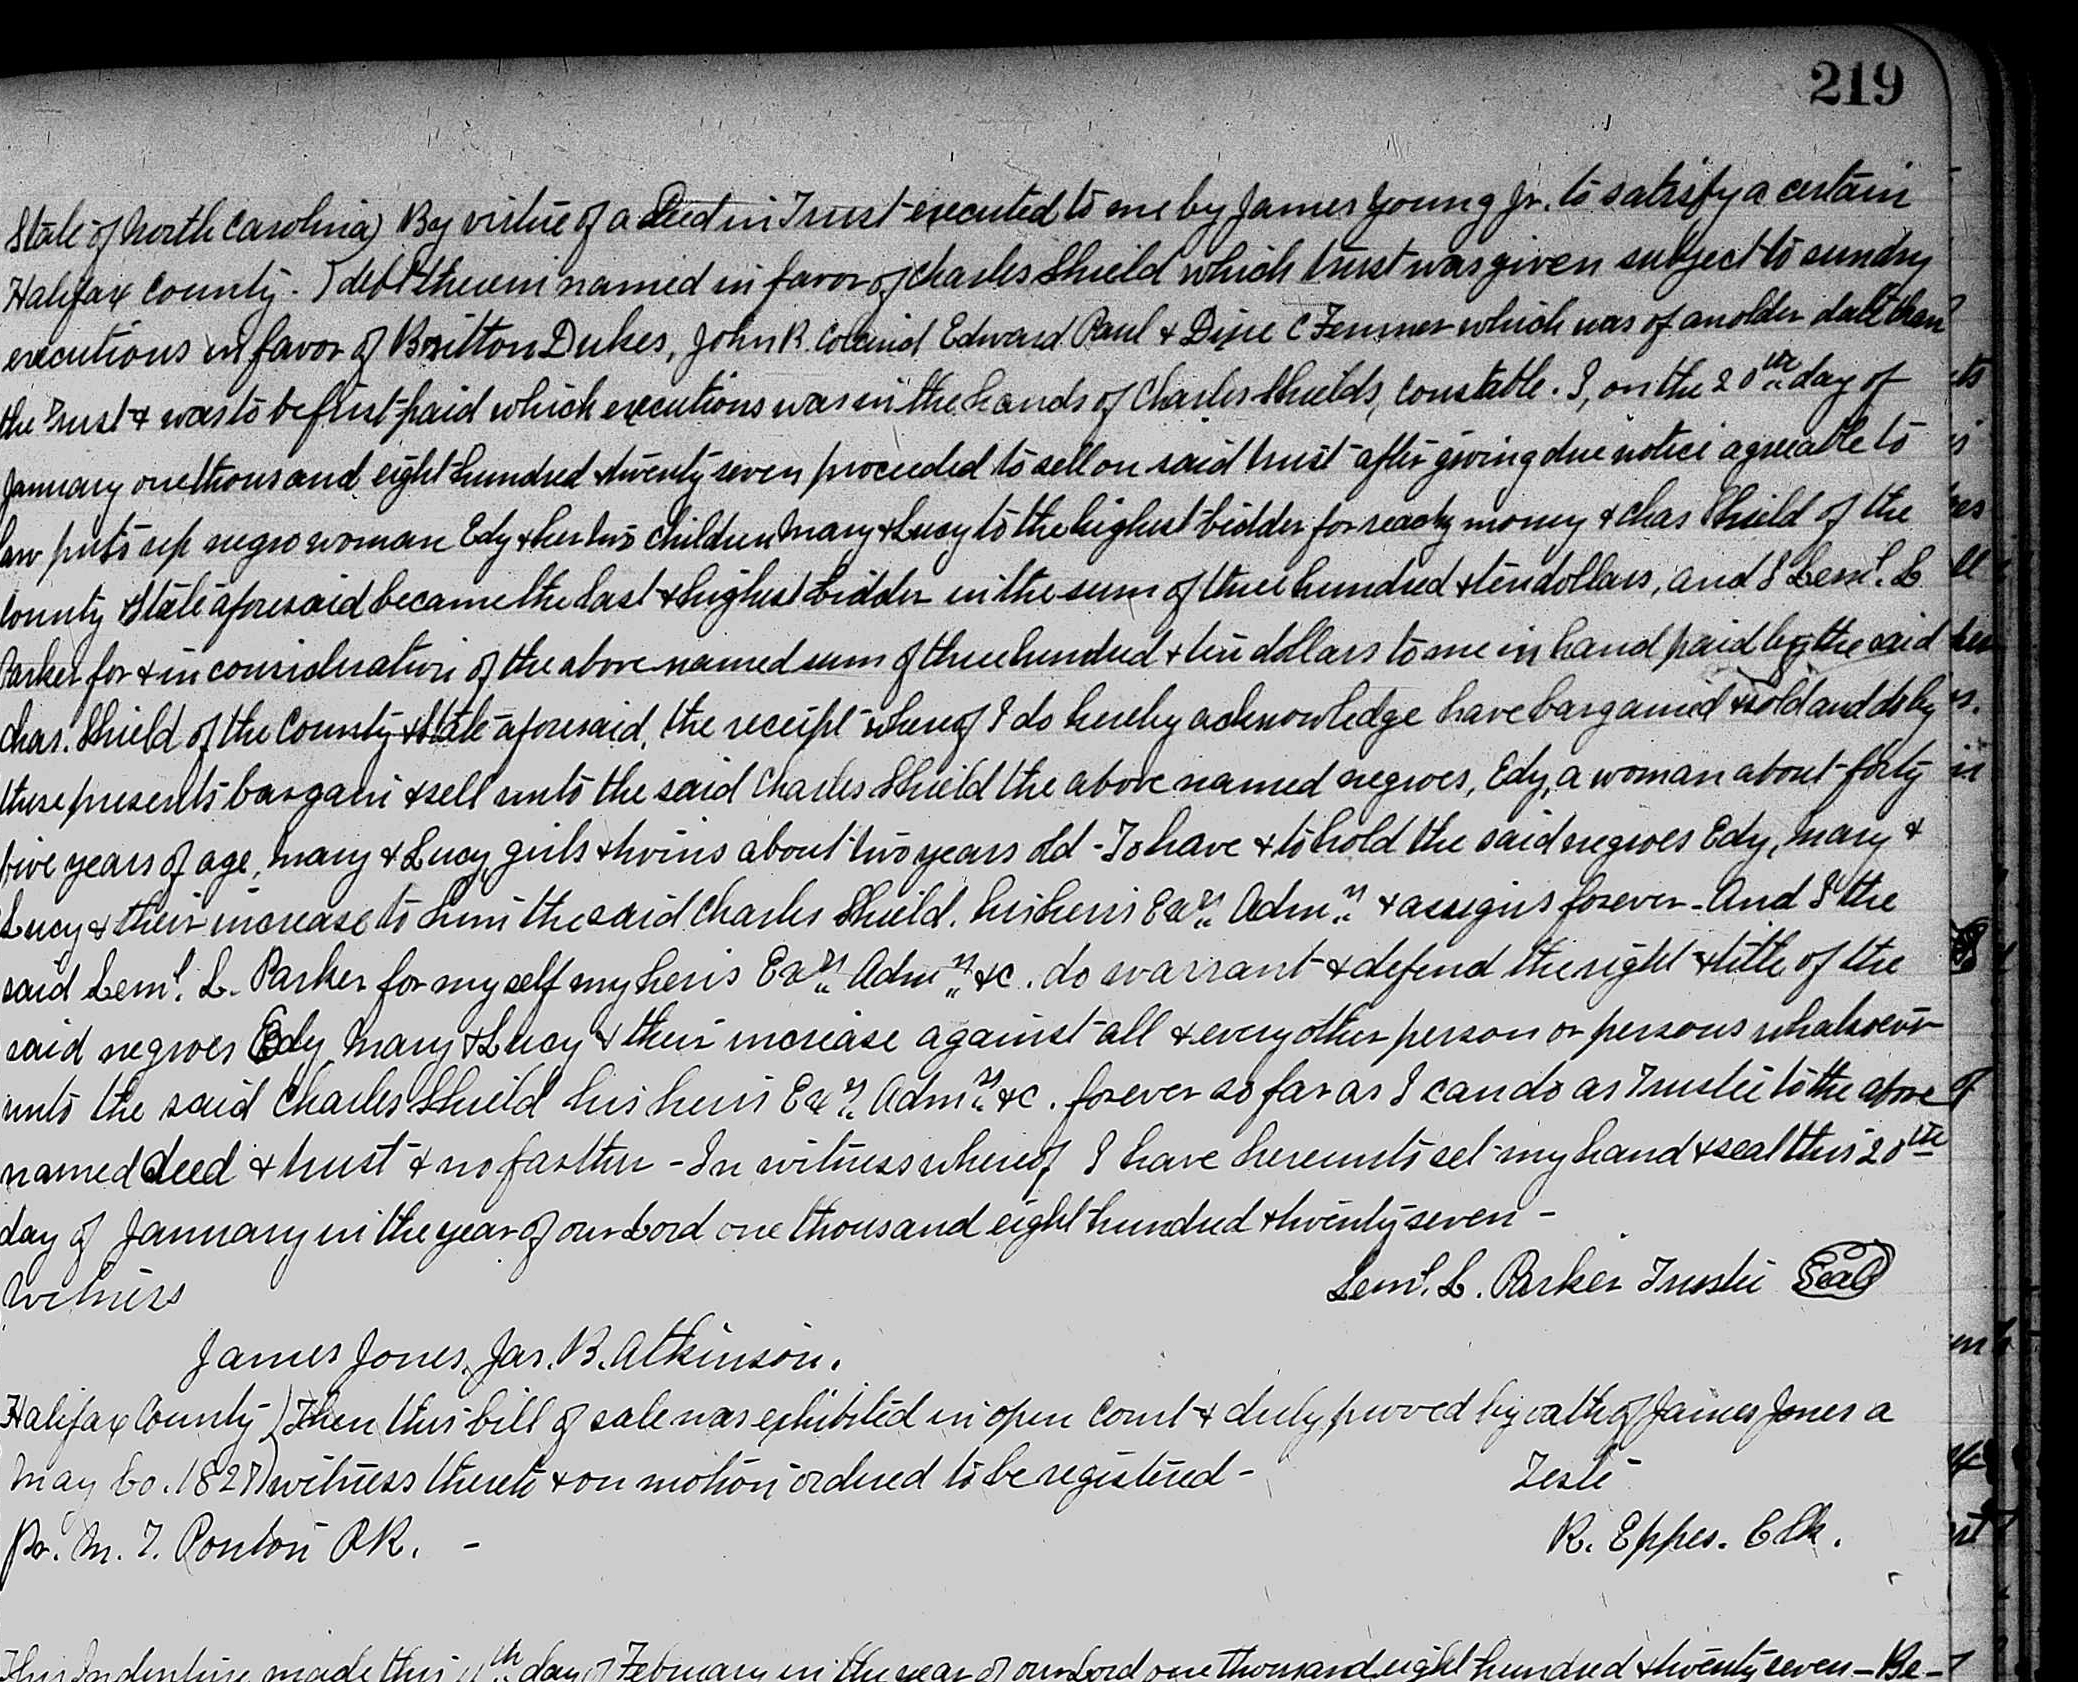 219
State of North Carolina) By virtue of a Deed in Trust executed to me by James Young Jr. to satisfy a certain
Halifax County - ) debt therein named in favor of Charles Shield which trust was given subject to sundry
executions in favor of Britton Dukes, John R. Edward Paul & C Fenner which was of an older date than
the Trust & was to be first paid which executions was in the hands of Charles Shields, Constable. I, on the 20th day of
January one thousand eight hundred & twenty seven proceeded to sell on said trust after giving due notice agreeable to
law puts up negro woman Edy & her two children Mary & Lucy to the highest bidder for ready money & Chas Shield of the
County & State aforesaid became the last & highest bidder in the sum of three hundred & ten dollars, and I Leml. L
Parker for & in consideration of the above named sum of three hundred & ten dollars to me in hand paid by the said
Chas. Shield of the County & State aforesaid, the receipt whereof I do hereby acknowledge have bargained & sold and do by
these presents bargain & sell unto the said Charles Shield the above named negroes, Edy, a woman about forty
five years of age, Mary & Lucy, girls & twins about two years old - To have & to hold the said negroes Edy, Mary &
Lucy & their increase to him the said Charles Shield, his heirs Exrs. Admrs. & assigns forever - And I the
said Leml. L. Parker for myself my heirs Exrs. Admrs. &c. do warrant & defend the right & title of the
said negroes Edy Mary & Lucy & their increase against all & every other person or persons whatsoever
unto the said Charles Shield his heirs Exrs. Admrs. &c. forever so far as I can do as Trustee to the above
named deed & trust & no farther - In witness whereof, I have hereunto set my hand & seal this 20th
day of January in the year of our Lord one thousand eight hundred & twenty seven -
Witness
Leml. L. Parker Trustee Seal
James Jones, Jas. B. Atkinson.
Halifax County ) Then this bill of sale was exhibited in open Court & duly proved by oath of James Jones a
May Co. 1827) witness thereto & on motion ordered to be registered -
Teste
Pr. M. T. Ponton P.R. -
R. Eppes. Clk.
This Indenture made this 11th day of February in the year of our Lord one thousand eight hundred & twenty seven - Be-